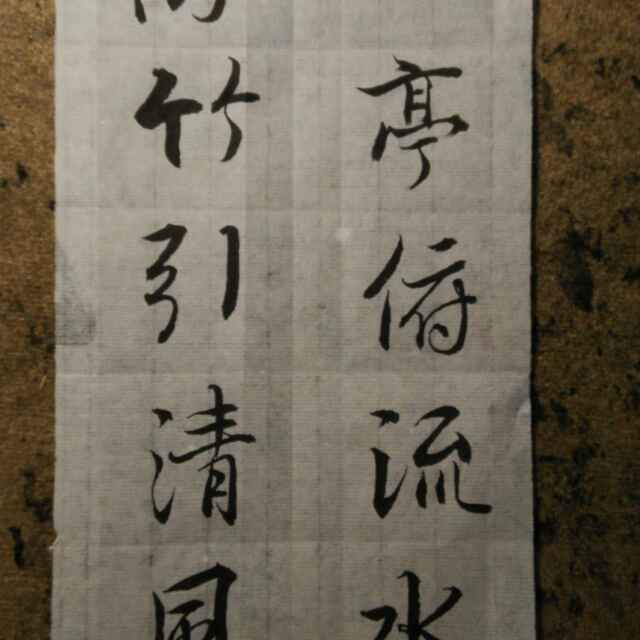 亭俯流水
竹引清風